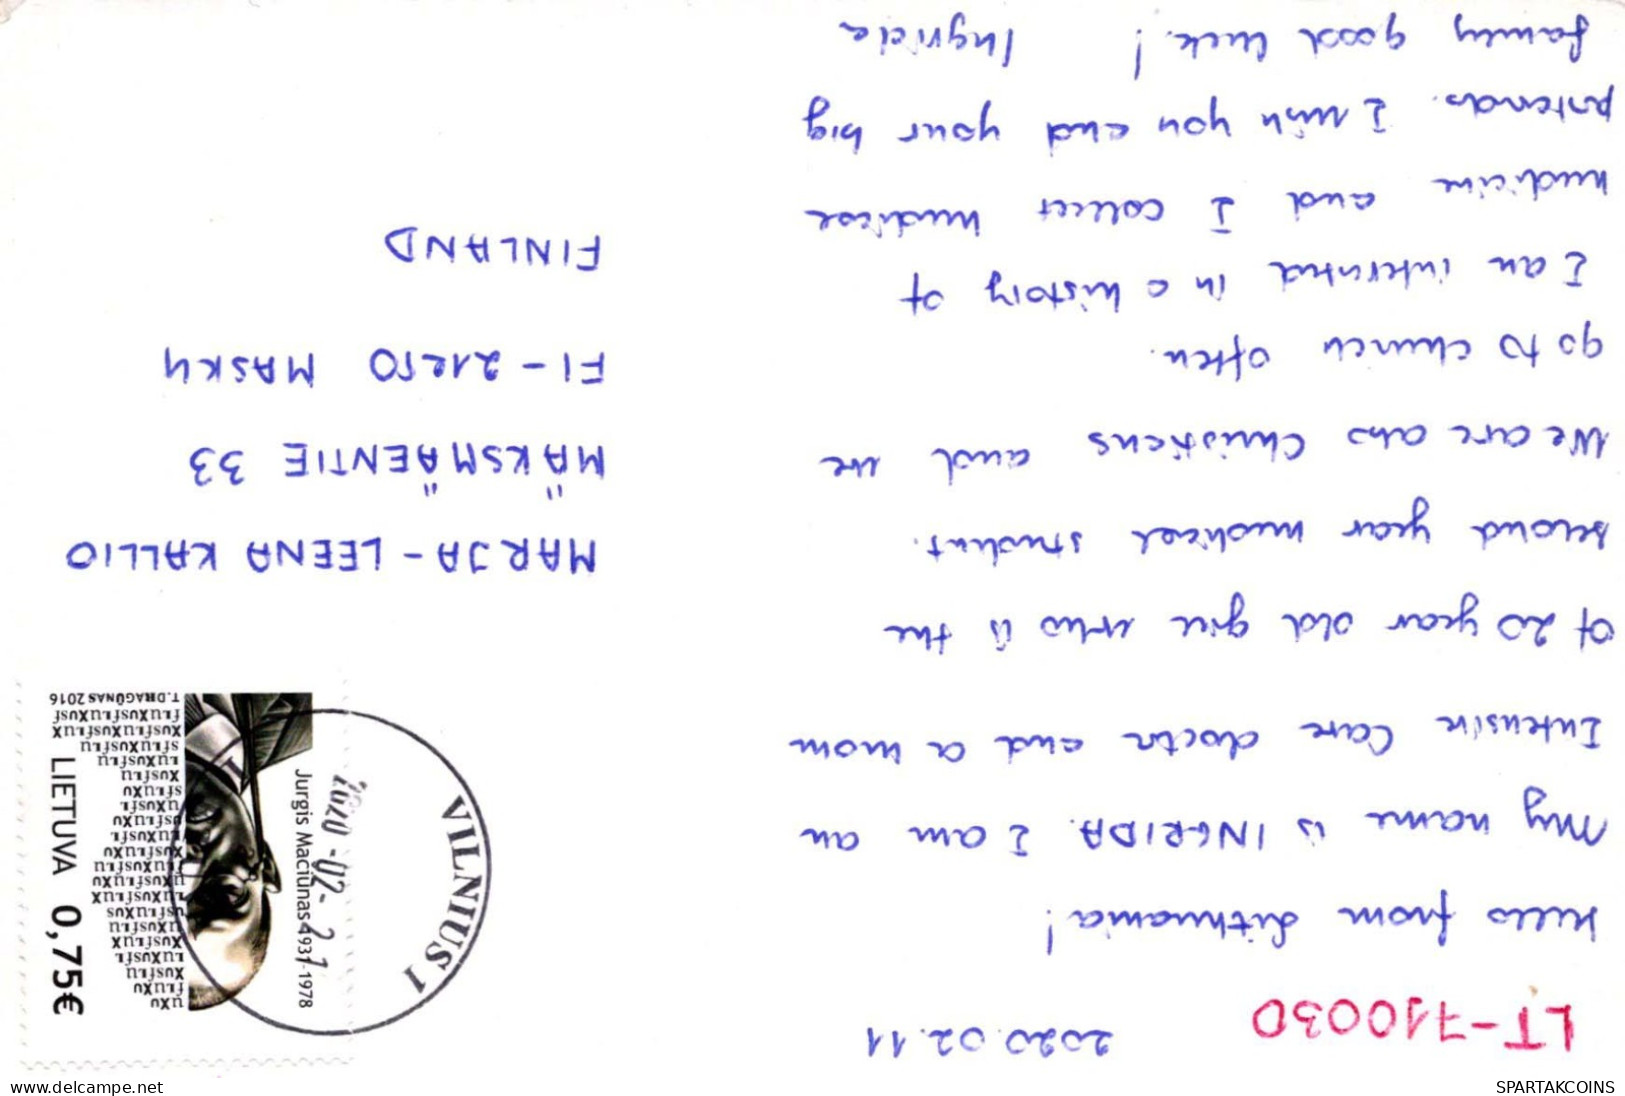 LT-710030
2020.02.11
Hello from Lithuania!
My name is INGRIDA. I am an
Intensive Care doctor and a mom
of 20 year old girl who is the
second year medical student.
We are also Christians and we
go to church often.
I am interested in a history of
medicine and I collect medical
postcards. I wish you and your big
family good luck! Ingrida
LIETUVA 0,75€
Jurgis Mačiūnas 1931-1978
T. DRAGŪNAS 2016
VILNIUS 1
2020-02-21
MARJA-LEENA KALLIO
MÄKSMÄENTIE 33
FI-21250 MASKU
FINLAND
SPARTAKCOINS